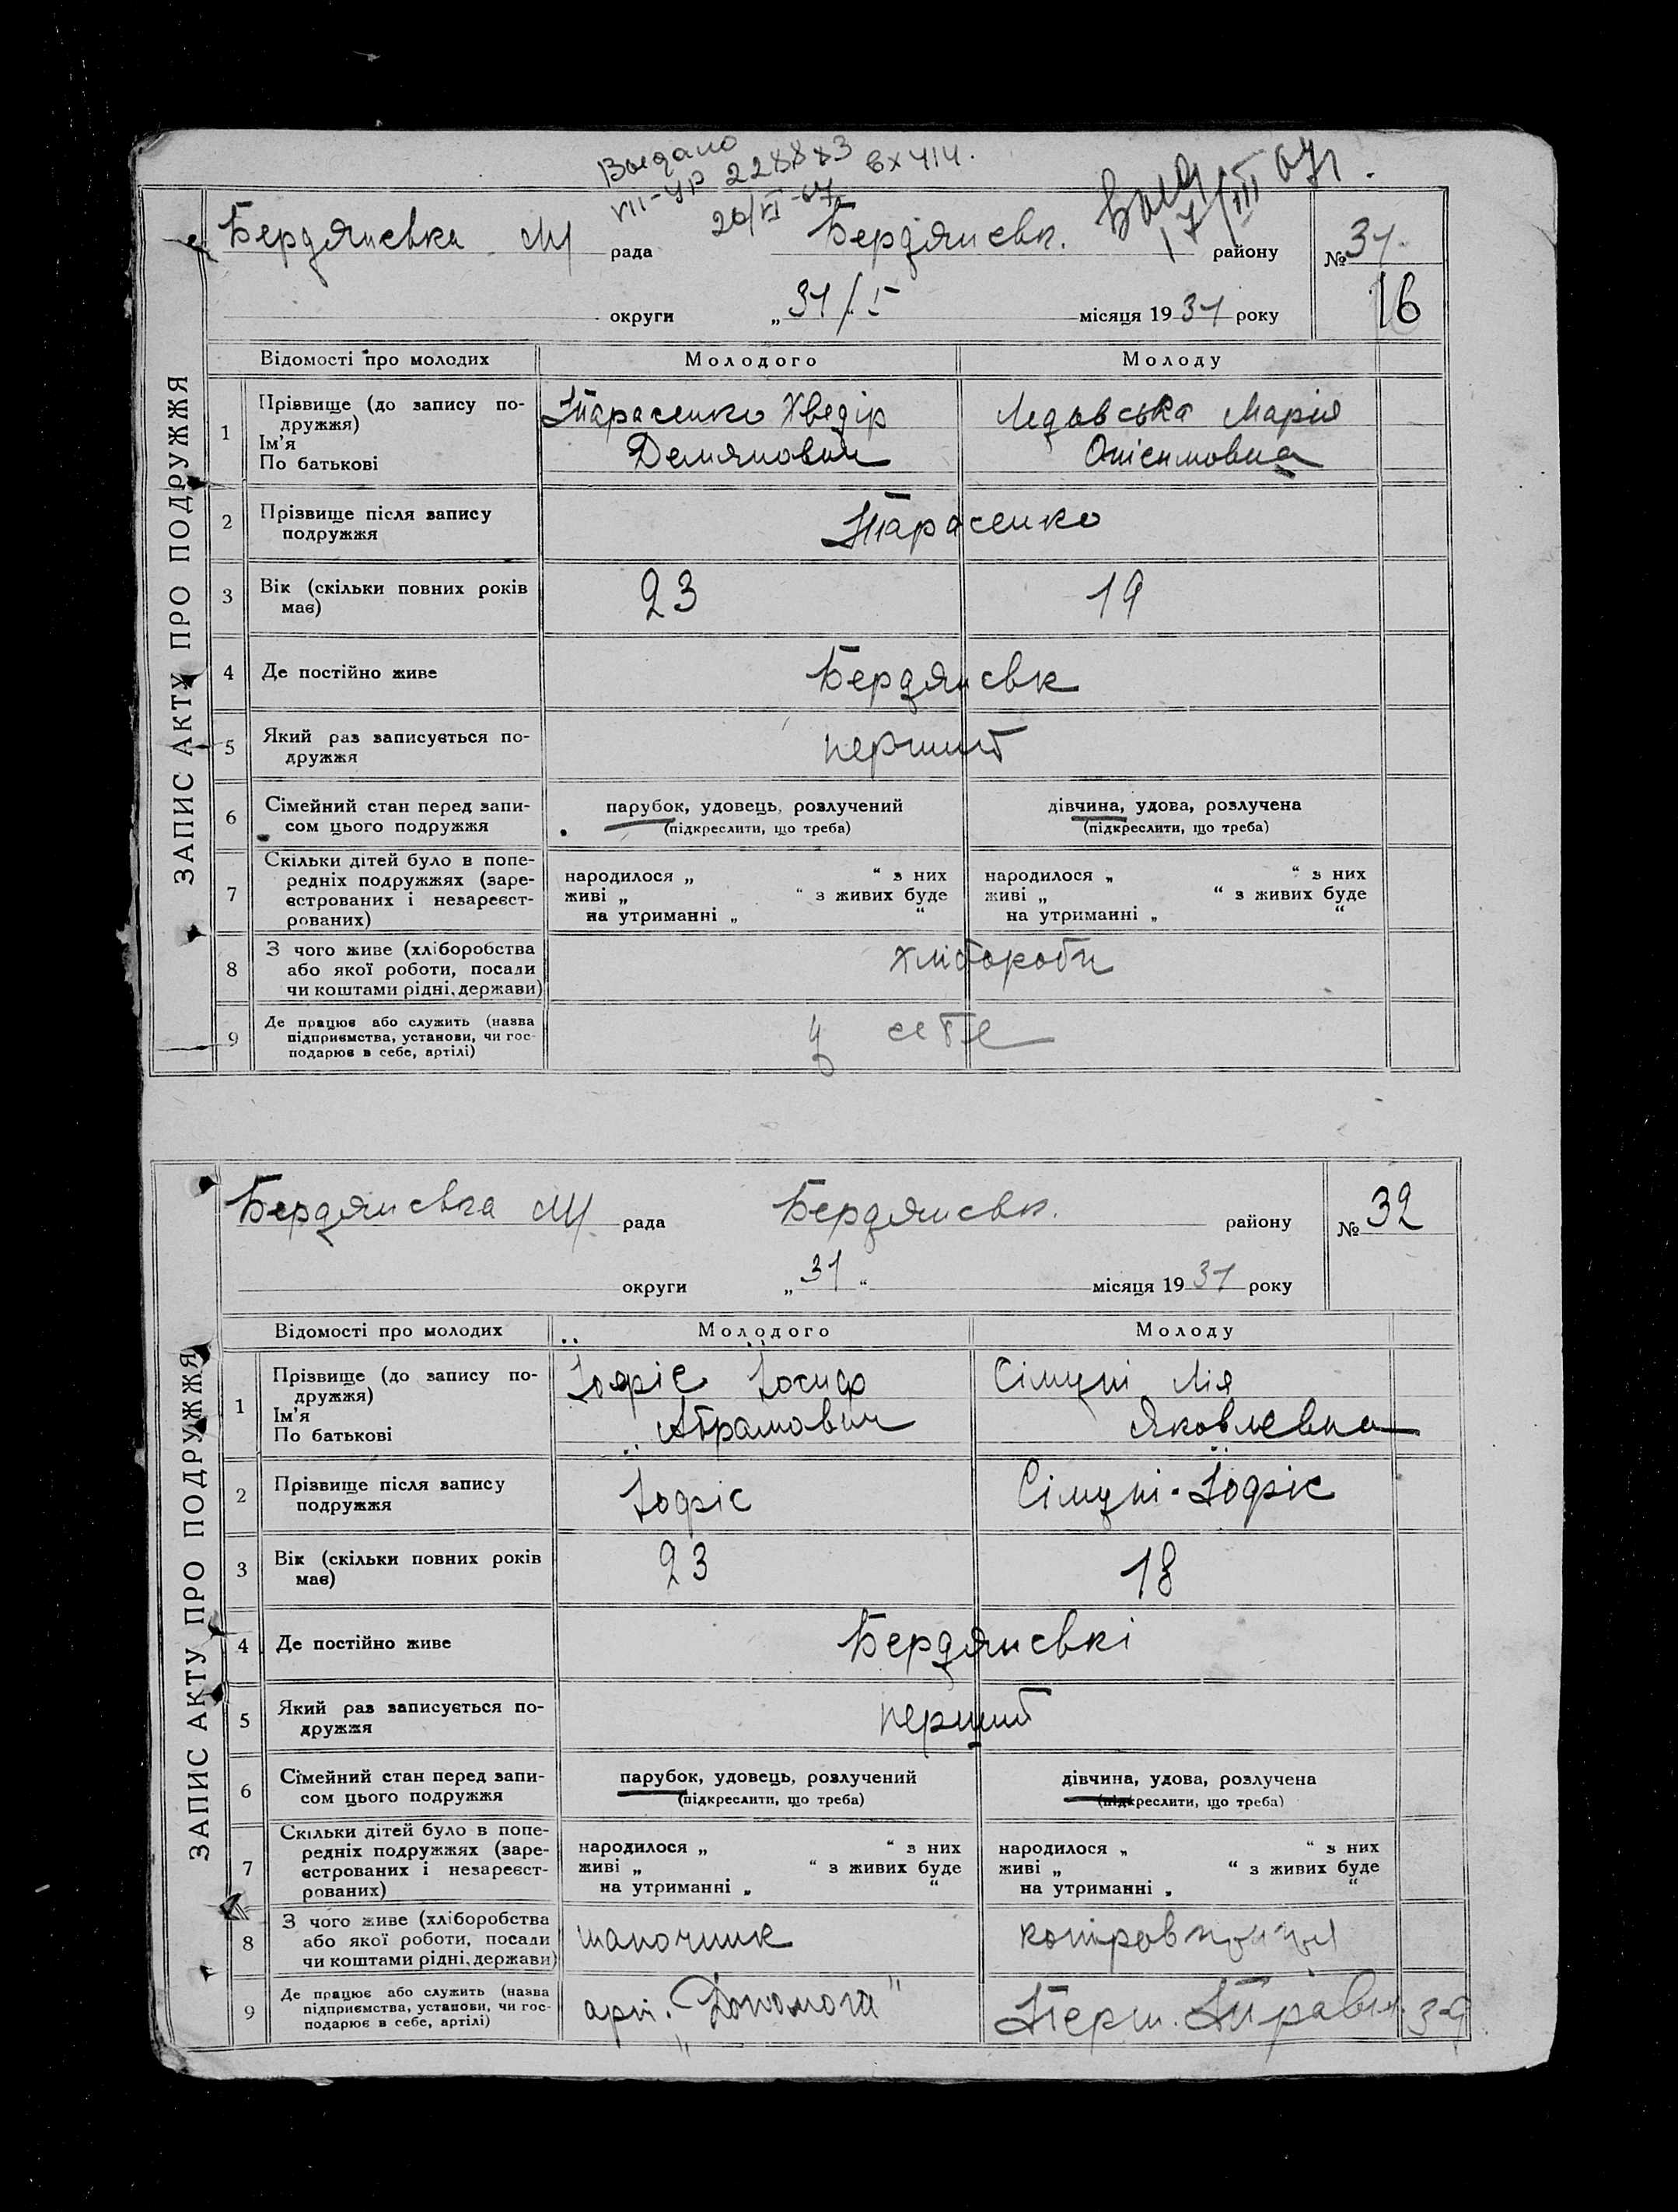 Видано
VII-УР 228883 вх 414.
20/VI-67
Бердянська М рада Бердянськ. району № 31.
округи „31/I місяця 1931 року 16
ЗАПИС АКТУ ПРО ПОДРУЖЖЯ
Відомості про молодих Молодого Молоду
1 Прізвище (до запису по- Тарасенко Хведір Ледовська Марія
дружжя)
Ім'я
По батькові Демянович Онісимовна
2 Прізвище після запису Тарасенко
подружжя
3 Вік (скільки повних років 23 19
має)
4 Де постійно живе Бердянськ
5 Який раз записується по- перший
дружжя
6 Сімейний стан перед запи- парубок, удовець, розлучений дівчина, удова, розлучена
сом цього подружжя (підкреслити, що треба) (підкреслити, що треба)
7 Скільки дітей було в попе-
редніх подружжях (заре- народилося „ “ з них народилося „ “ з них
єстрованих і незареєст- живі „ “ з живих буде живі „ “ з живих буде
рованих) на утриманні „ “ на утриманні „ “
8 З чого живе (хліборобства хлібороби
або якої роботи, посади
чи коштами рідні, держави)
9 Де працює або служить (назва у себе
підприємства, установи, чи гос-
подарює в себе, артілі)
Бердянська М рада Бердянськ. району № 32
округи „31“ місяця 1931 року
ЗАПИС АКТУ ПРО ПОДРУЖЖЯ
Відомості про молодих Молодого Молоду
1 Прізвище (до запису по- Їофіс Їосиф Сімуні Лія
дружжя)
Ім'я
По батькові Абрамович Яковлевна
2 Прізвище після запису Їофіс Сімуні-Їофіс
подружжя
3 Вік (скільки повних років 23 18
має)
4 Де постійно живе Бердянські
5 Який раз записується по- перший
дружжя
6 Сімейний стан перед запи- парубок, удовець, розлучений дівчина, удова, розлучена
сом цього подружжя (підкреслити, що треба) (підкреслити, що треба)
7 Скільки дітей було в попе-
редніх подружжях (заре- народилося „ “ з них народилося „ “ з них
єстрованих і незареєст- живі „ “ з живих буде живі „ “ з живих буде
рованих) на утриманні „ “ на утриманні „ “
8 З чого живе (хліборобства шапочник
або якої роботи, посади
чи коштами рідні, держави)
9 Де працює або служить (назва арт. „Допомога" Перш. Травн.
підприємства, установи, чи гос-
подарює в себе, артілі)